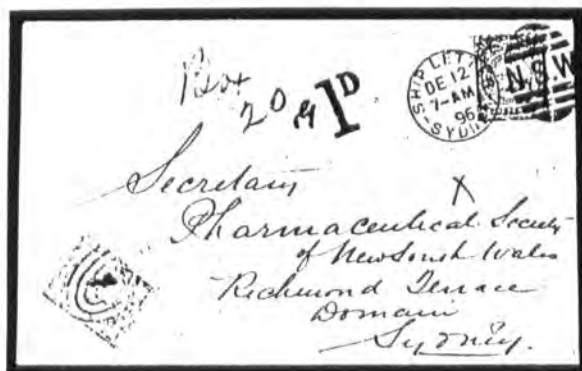 Box
20 1D
SHIP LET
DE 12
7-AM
96
SYDNEY
N.S.W
Secretary
X
Pharmaceutical Society
of New South Wales
Richmond Terrace
Domain
Sydney.